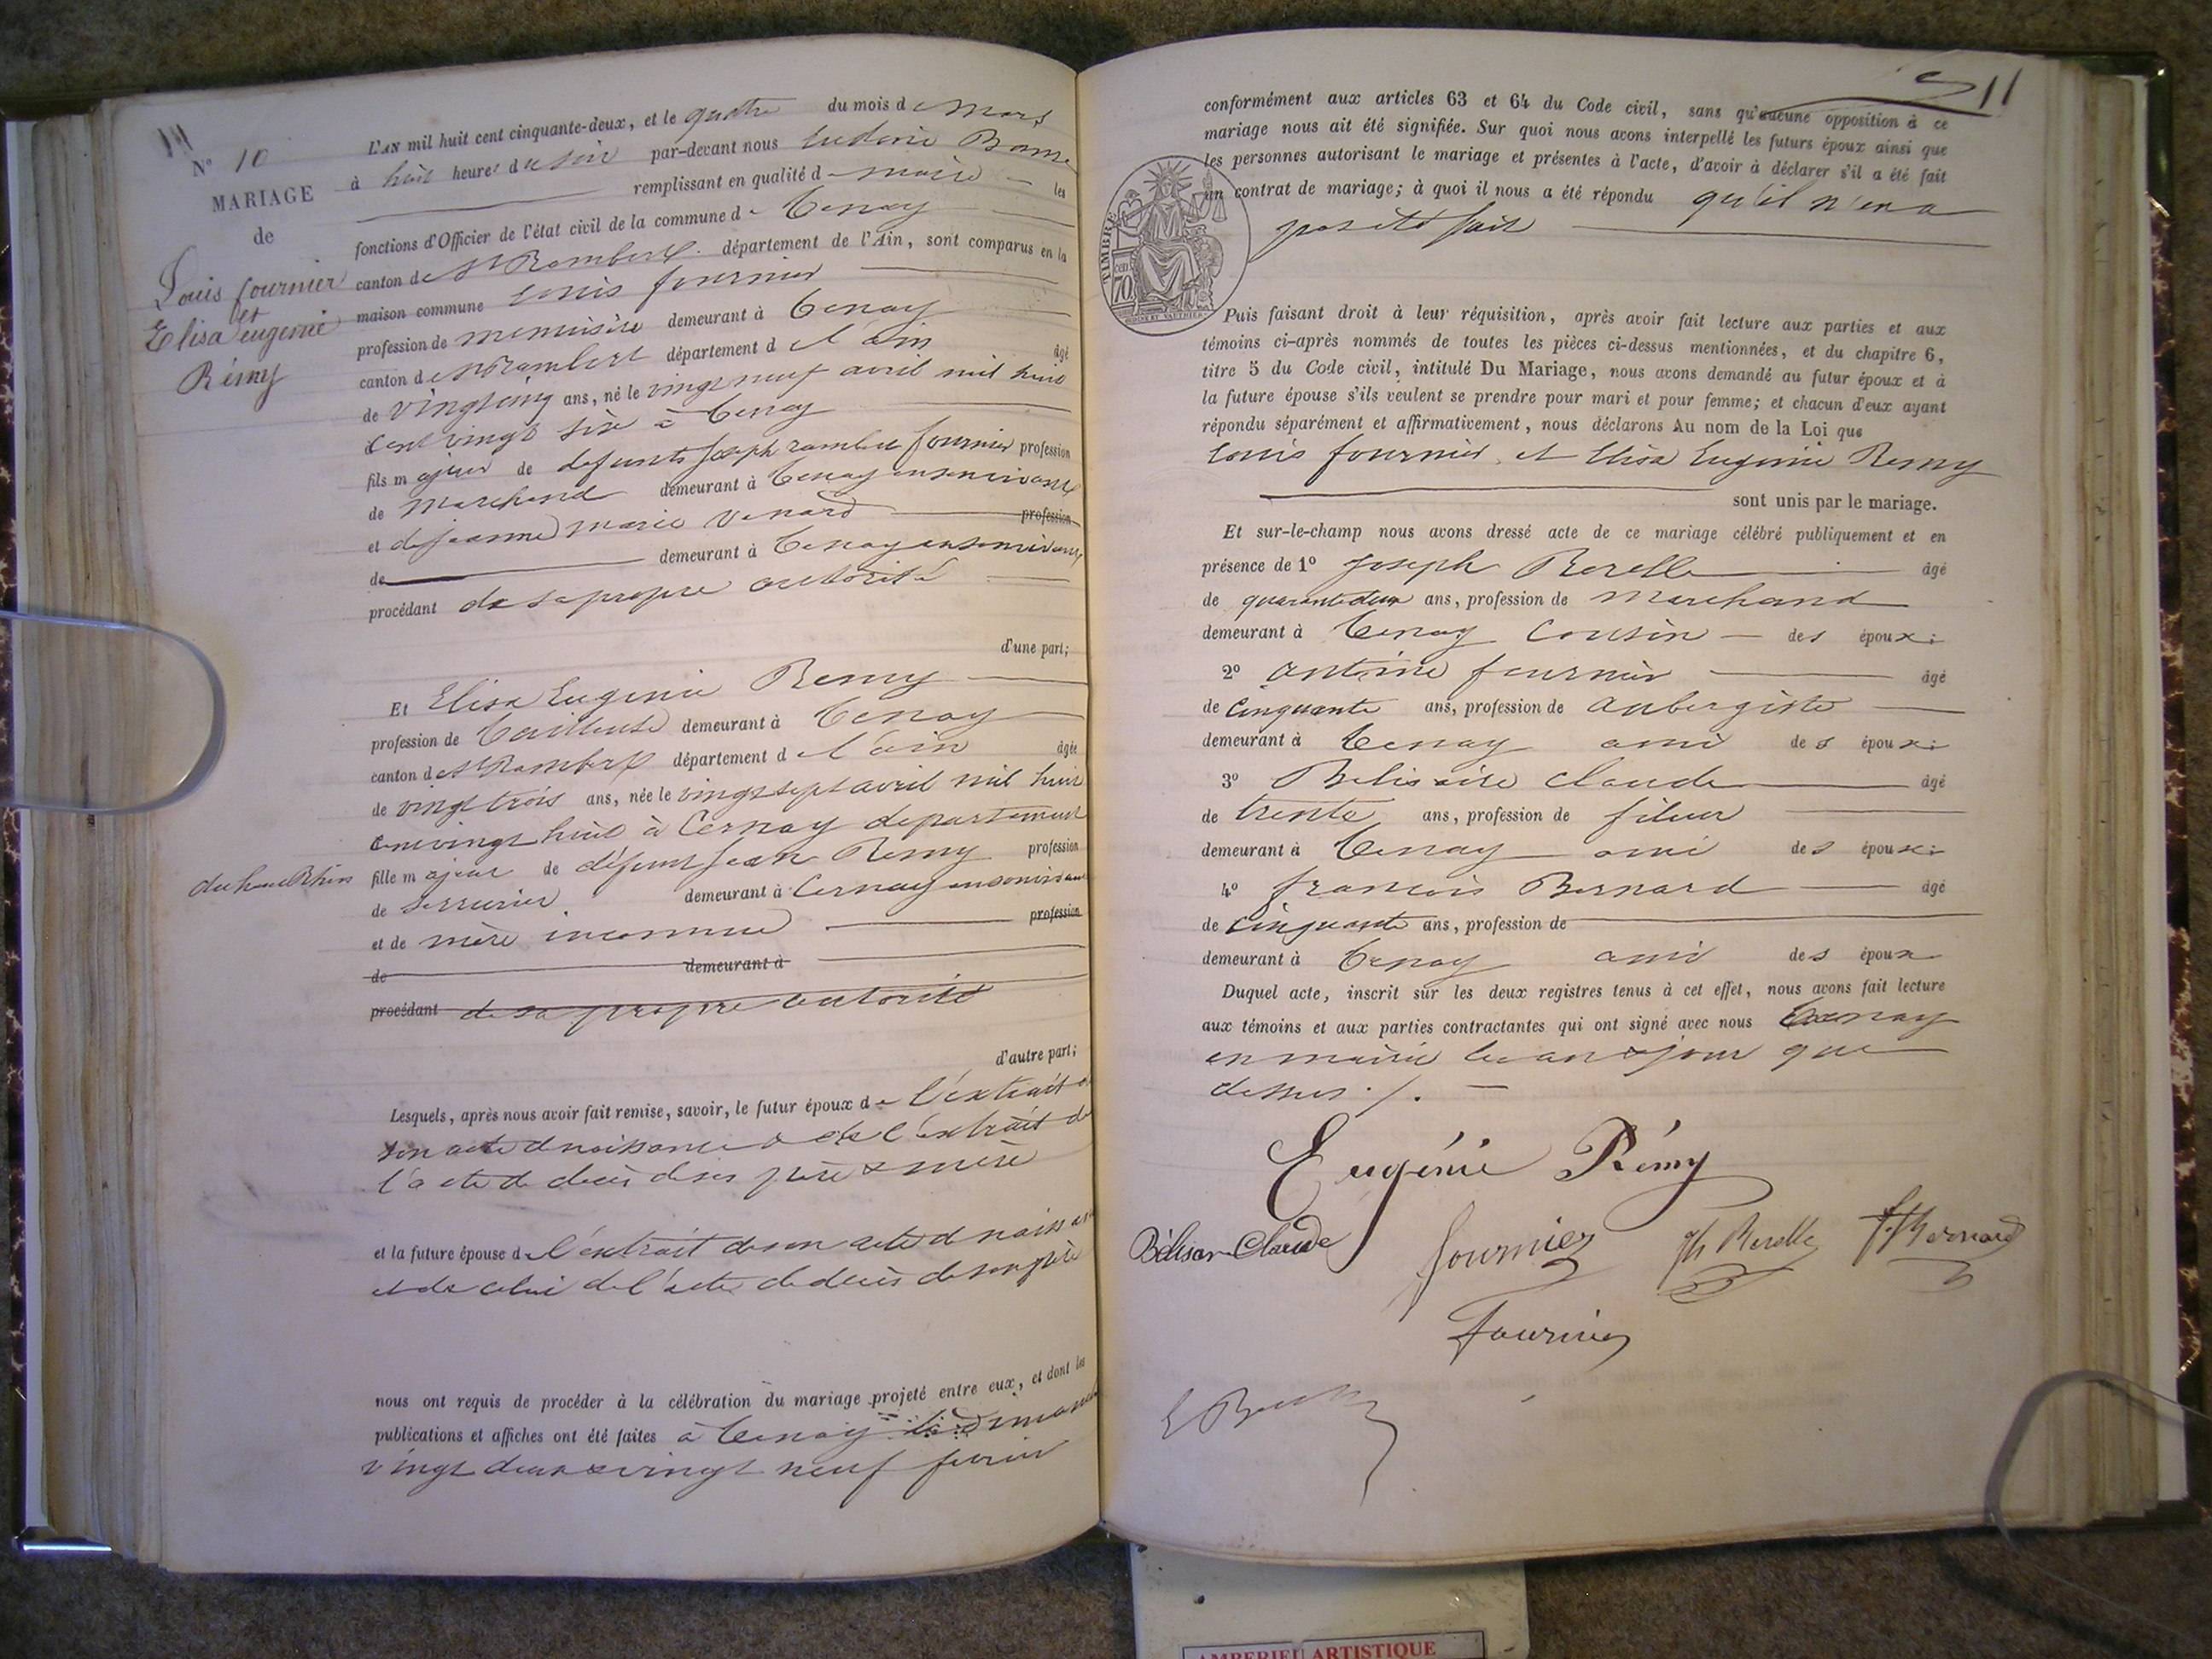 N° 10
MARIAGE
de
Louis fournier
et
Elisa Eugenie
Rémy
L'AN mil huit cent cinquante-deux, et le quatre du mois de Mars
à huit heures du soir par-devant nous Ludovic
remplissant en qualité de maire les
fonctions d'Officier de l'état civil de la commune de Tenay
canton de St Rambert département de l'Ain, sont comparus en la
maison commune Louis fournier
profession de menuisier demeurant à Tenay
canton de St Rambert département de l'ain âgé
de vingt cinq ans, né le vingt neuf avril mil huit
cent vingt six à Tenay
fils majeur de defunts Joseph rambert fournier profession
de Marchand demeurant à Tenay en son vivant
et de jeanne marie Venard profession
de demeurant à Tenay en son vivant
procédant de sa propre autorité
d'une part;
Et Elisa Eugenie Remy
profession de tailleuse demeurant à Tenay
canton de St Rambert département de l'ain âgée
de vingt trois ans, née le vingt sept avril mil huit
cent vingt huit à Cernay departement
du haut Rhin
fille majeur de défunt Jean Remy profession
de serrurier demeurant à Cernay en son vivant
et de mère inconnue profession
de demeurant à
procédant de sa propre autorité
d'autre part;
Lesquels, après nous avoir fait remise, savoir, le futur époux de l'extrait de
son acte de naissance & de l'extrait de
l'acte de decès de ses père & mère
et la future épouse de l'extrait de son acte de naissance
et de celui de l'acte de decès de son père
nous ont requis de procéder à la célébration du mariage projeté entre eux, et dont les
publications et affiches ont été faites à Tenay les dimanches
vingt deux & vingt neuf fevrier
11
conformément aux articles 63 et 64 du Code civil, sans qu'aucune opposition à ce
mariage nous ait été signifiée. Sur quoi nous avons interpellé les futurs époux ainsi que
les personnes autorisant le mariage et présentes à l'acte, d'avoir à déclarer s'il a été fait
un contrat de mariage; à quoi il nous a été répondu qu'il n'en a
pas été fait
TIMBRE
70
Puis faisant droit à leur réquisition, après avoir fait lecture aux parties et aux
témoins ci-après nommés de toutes les pièces ci-dessus mentionnées, et du chapitre 6,
titre 5 du Code civil, intitulé Du Mariage, nous avons demandé au futur époux et à
la future épouse s'ils veulent se prendre pour mari et pour femme; et chacun d'eux ayant
répondu séparément et affirmativement, nous déclarons Au nom de la Loi que
Louis fournier et Elisa Eugenie Remy
sont unis par le mariage.
Et sur-le-champ nous avons dressé acte de ce mariage célébré publiquement et en
présence de 1° Joseph Berelle âgé
de quarante deux ans, profession de Marchand
demeurant à Tenay Cousin des époux;
2° antoine fournier âgé
de Cinquante ans, profession de aubergiste
demeurant à Tenay ami des époux;
3° Belisaire Claude âgé
de trente ans, profession de fileur
demeurant à Tenay ami des époux;
4° francois Bernard âgé
de Cinquante ans, profession de
demeurant à Tenay ami des époux
Duquel acte, inscrit sur les deux registres tenus à cet effet, nous avons fait lecture
aux témoins et aux parties contractantes qui ont signé avec nous Tenay
en mairie les an & jour que
dessus ./.
Eugénie Rémy
Bélisar Claude fournier Jh Berelle f. Bernard
Fournier
AMBERIEU ARTISTIQUE